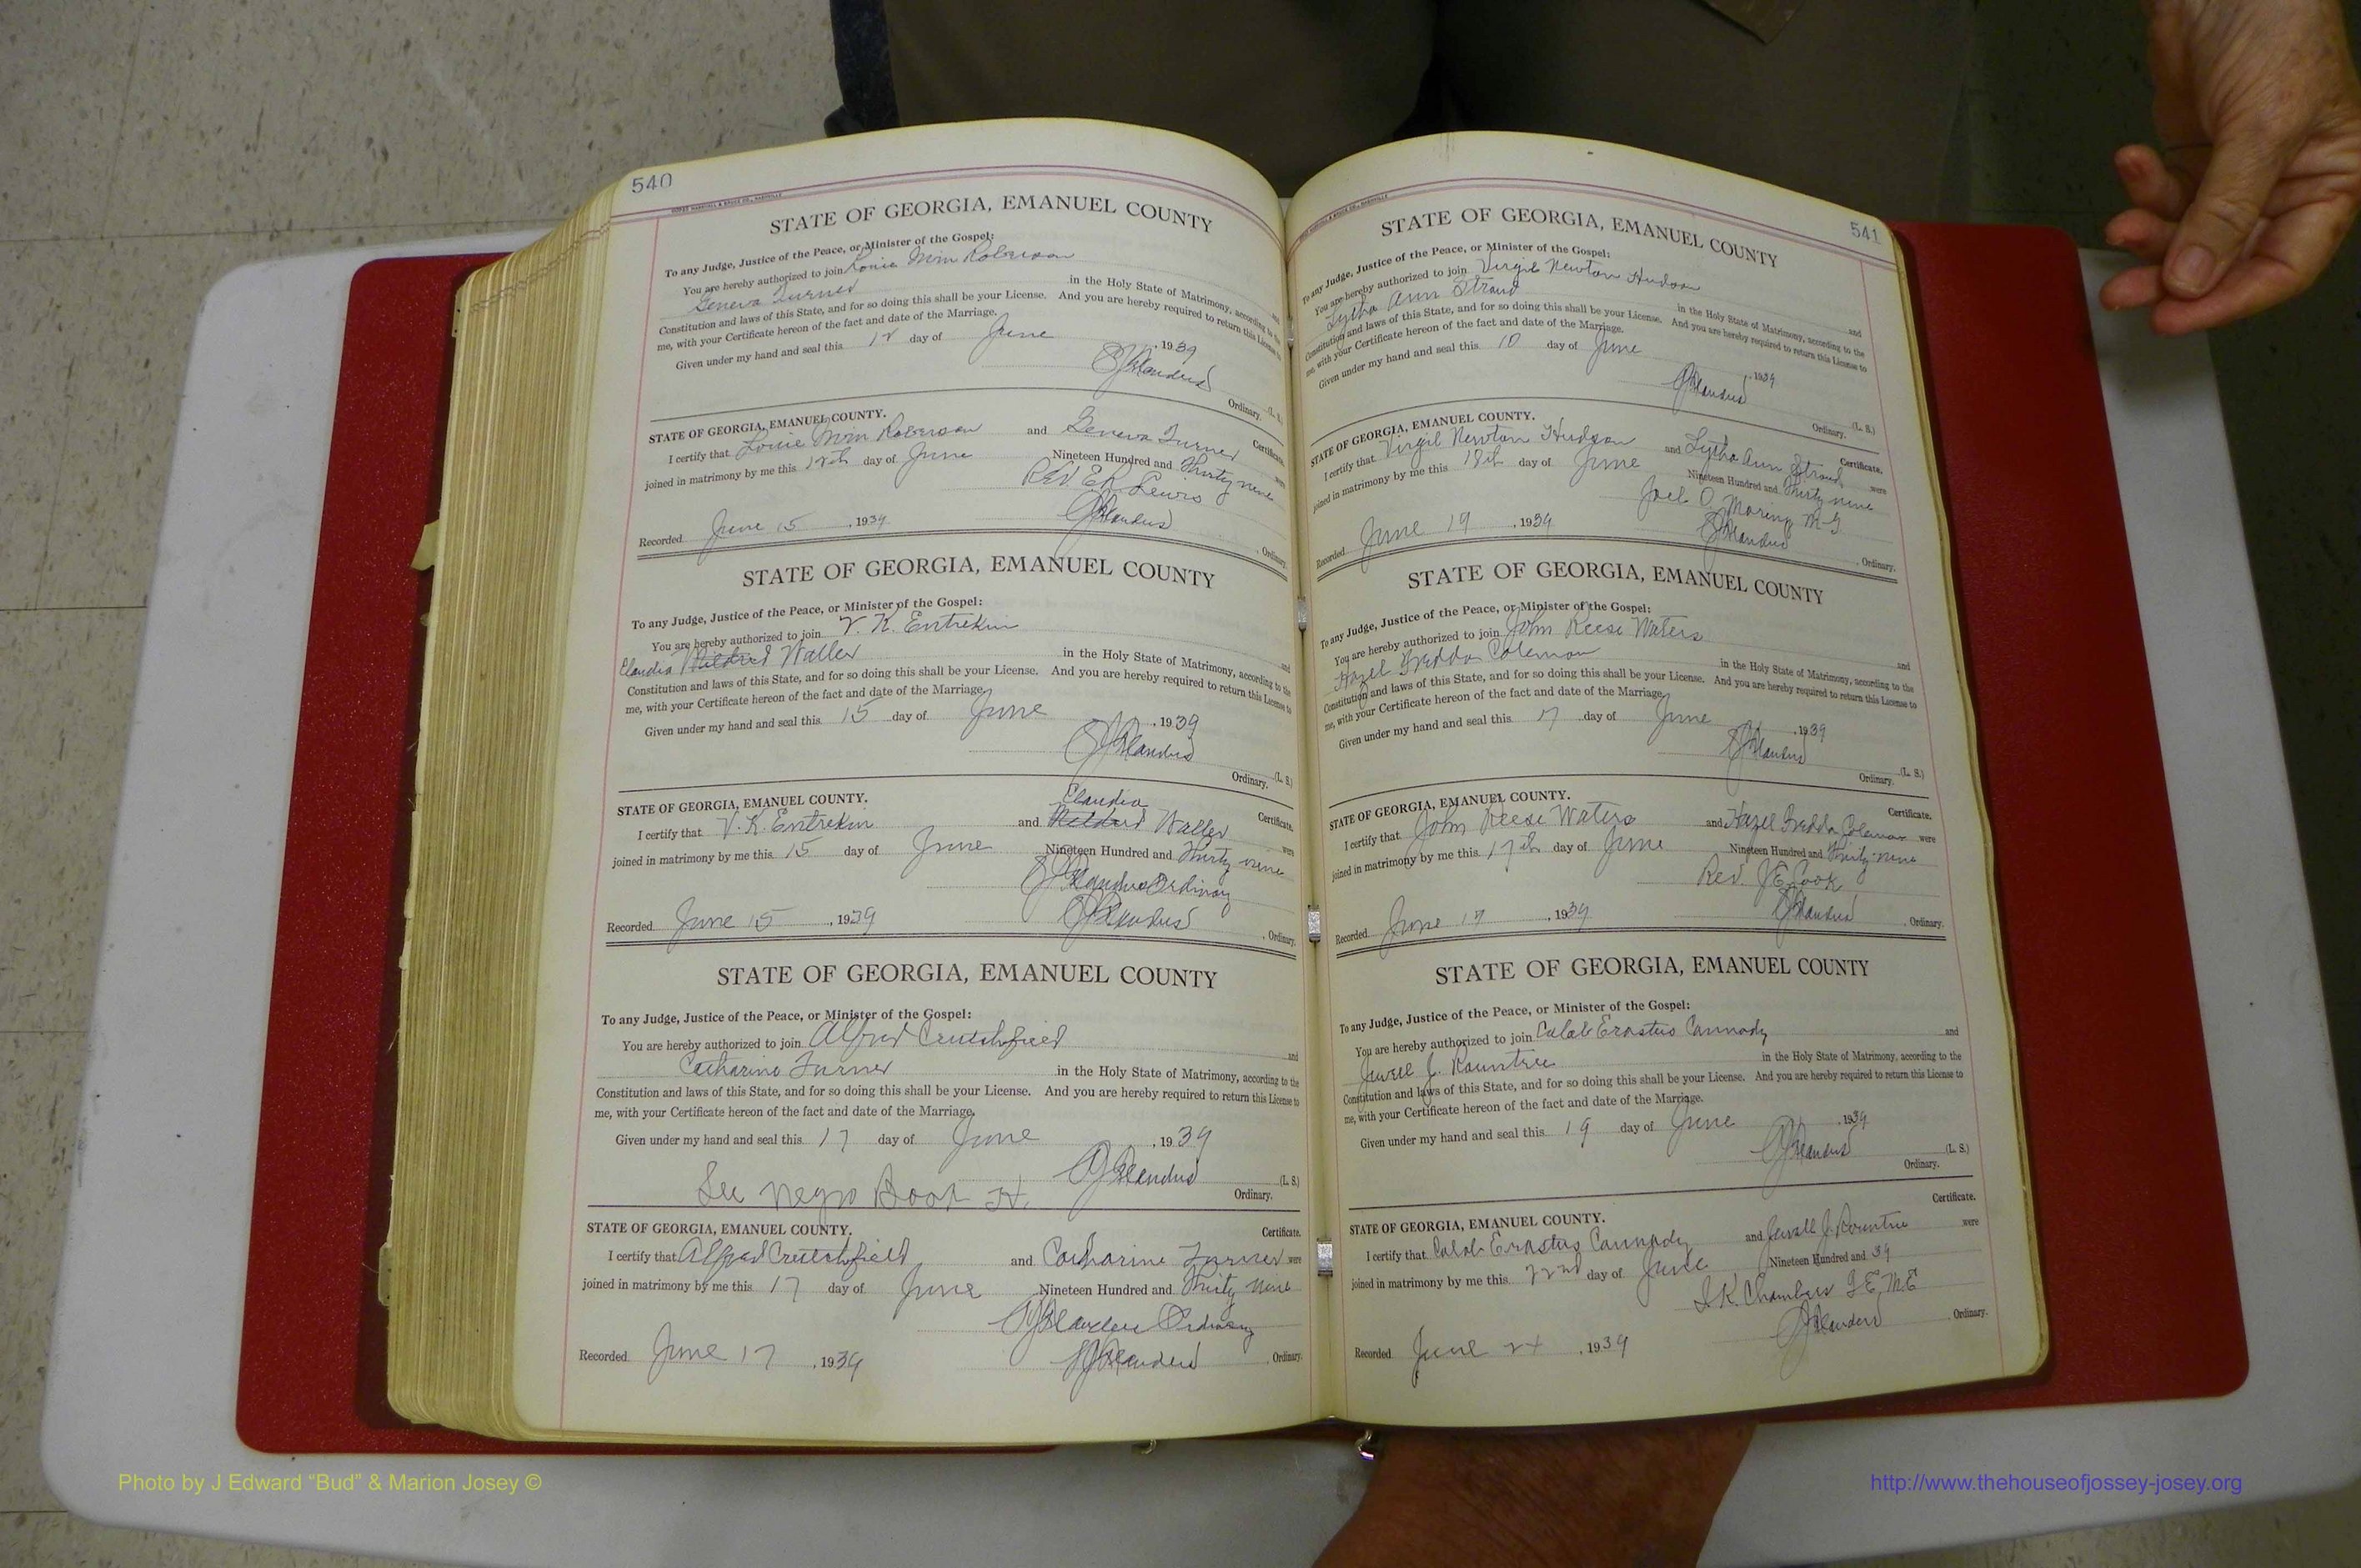 540
STATE OF GEORGIA, EMANUEL COUNTY
To any Judge, Justice of the Peace, or Minister of the Gospel:
You are hereby authorized to join Roberson
Geneva Turner in the Holy State of Matrimony, according to the
Constitution and laws of this State, and for so doing this shall be your License. And you are hereby required to return this License to
me, with your Certificate hereon of the fact and date of the Marriage.
Given under my hand and seal this 12 day of June, 1939
(L. S.)
Ordinary.
STATE OF GEORGIA, EMANUEL COUNTY.
Certificate.
I certify that Roberson and Geneva Turner were
joined in matrimony by me this 12th day of June Nineteen Hundred and Thirty nine
Rev. E. R. Lewis
Recorded June 15, 1939 Ordinary.
STATE OF GEORGIA, EMANUEL COUNTY
To any Judge, Justice of the Peace, or Minister of the Gospel:
You are hereby authorized to join V. K. Entrekin and
Claudia Mildred Waller in the Holy State of Matrimony, according to the
Constitution and laws of this State, and for so doing this shall be your License. And you are hereby required to return this License to
me, with your Certificate hereon of the fact and date of the Marriage.
Given under my hand and seal this 15 day of June, 1939
(L. S.)
Ordinary.
STATE OF GEORGIA, EMANUEL COUNTY.
Claudia Certificate.
I certify that V. K. Entrekin and Mildred Waller were
joined in matrimony by me this 15 day of June Nineteen Hundred and Thirty nine
Ordinary
Recorded June 15, 1939, Ordinary.
STATE OF GEORGIA, EMANUEL COUNTY
To any Judge, Justice of the Peace, or Minister of the Gospel:
You are hereby authorized to join Alfred Crutchfield and
Catharine Turner in the Holy State of Matrimony, according to the
Constitution and laws of this State, and for so doing this shall be your License. And you are hereby required to return this License to
me, with your Certificate hereon of the fact and date of the Marriage.
Given under my hand and seal this 17 day of June, 1939
(L. S.)
See Negro Book H. Ordinary.
STATE OF GEORGIA, EMANUEL COUNTY. Certificate.
I certify that Alfred Crutchfield and Catharine Turner were
joined in matrimony by me this 17 day of June Nineteen Hundred and Thirty nine
Ordinary
Recorded June 17, 1939, Ordinary.
541
STATE OF GEORGIA, EMANUEL COUNTY
To any Judge, Justice of the Peace, or Minister of the Gospel:
You are hereby authorized to join Virgil Newton Hudson and
Lytha Ann Stroud in the Holy State of Matrimony, according to the
Constitution and laws of this State, and for so doing this shall be your License. And you are hereby required to return this License to
me, with your Certificate hereon of the fact and date of the Marriage.
Given under my hand and seal this 10 day of June, 1939
(L. S.)
Ordinary.
STATE OF GEORGIA, EMANUEL COUNTY.
Certificate.
I certify that Virgil Newton Hudson and Lytha Ann Stroud were
joined in matrimony by me this 18th day of June Nineteen Hundred and Thirty nine
Joel O. M. G.
Recorded June 19, 1939, Ordinary.
STATE OF GEORGIA, EMANUEL COUNTY
To any Judge, Justice of the Peace, or Minister of the Gospel:
You are hereby authorized to join John Reese Waters and
Hazel Fredda Coleman in the Holy State of Matrimony, according to the
Constitution and laws of this State, and for so doing this shall be your License. And you are hereby required to return this License to
me, with your Certificate hereon of the fact and date of the Marriage.
Given under my hand and seal this 17 day of June, 1939
(L. S.)
Ordinary.
STATE OF GEORGIA, EMANUEL COUNTY.
Certificate.
I certify that John Reese Waters and Hazel Fredda Coleman were
joined in matrimony by me this 17th day of June Nineteen Hundred and Thirty nine
Rev. J. E. Cook
Recorded June 19, 1939, Ordinary.
STATE OF GEORGIA, EMANUEL COUNTY
To any Judge, Justice of the Peace, or Minister of the Gospel:
You are hereby authorized to join Calab Erastus Cannady and
Jewell J. Rountree in the Holy State of Matrimony, according to the
Constitution and laws of this State, and for so doing this shall be your License. And you are hereby required to return this License to
me, with your Certificate hereon of the fact and date of the Marriage.
Given under my hand and seal this 19 day of June, 1939
(L. S.)
Ordinary.
STATE OF GEORGIA, EMANUEL COUNTY. Certificate.
I certify that Calab Erastus Cannady and Jewell J. Rountree were
joined in matrimony by me this 22nd day of June Nineteen Hundred and 39
K. Chambers
Recorded June 24, 1939 Ordinary.
Photo by J Edward “Bud” & Marion Josey ©
http://www.thehouseofjossey-josey.org